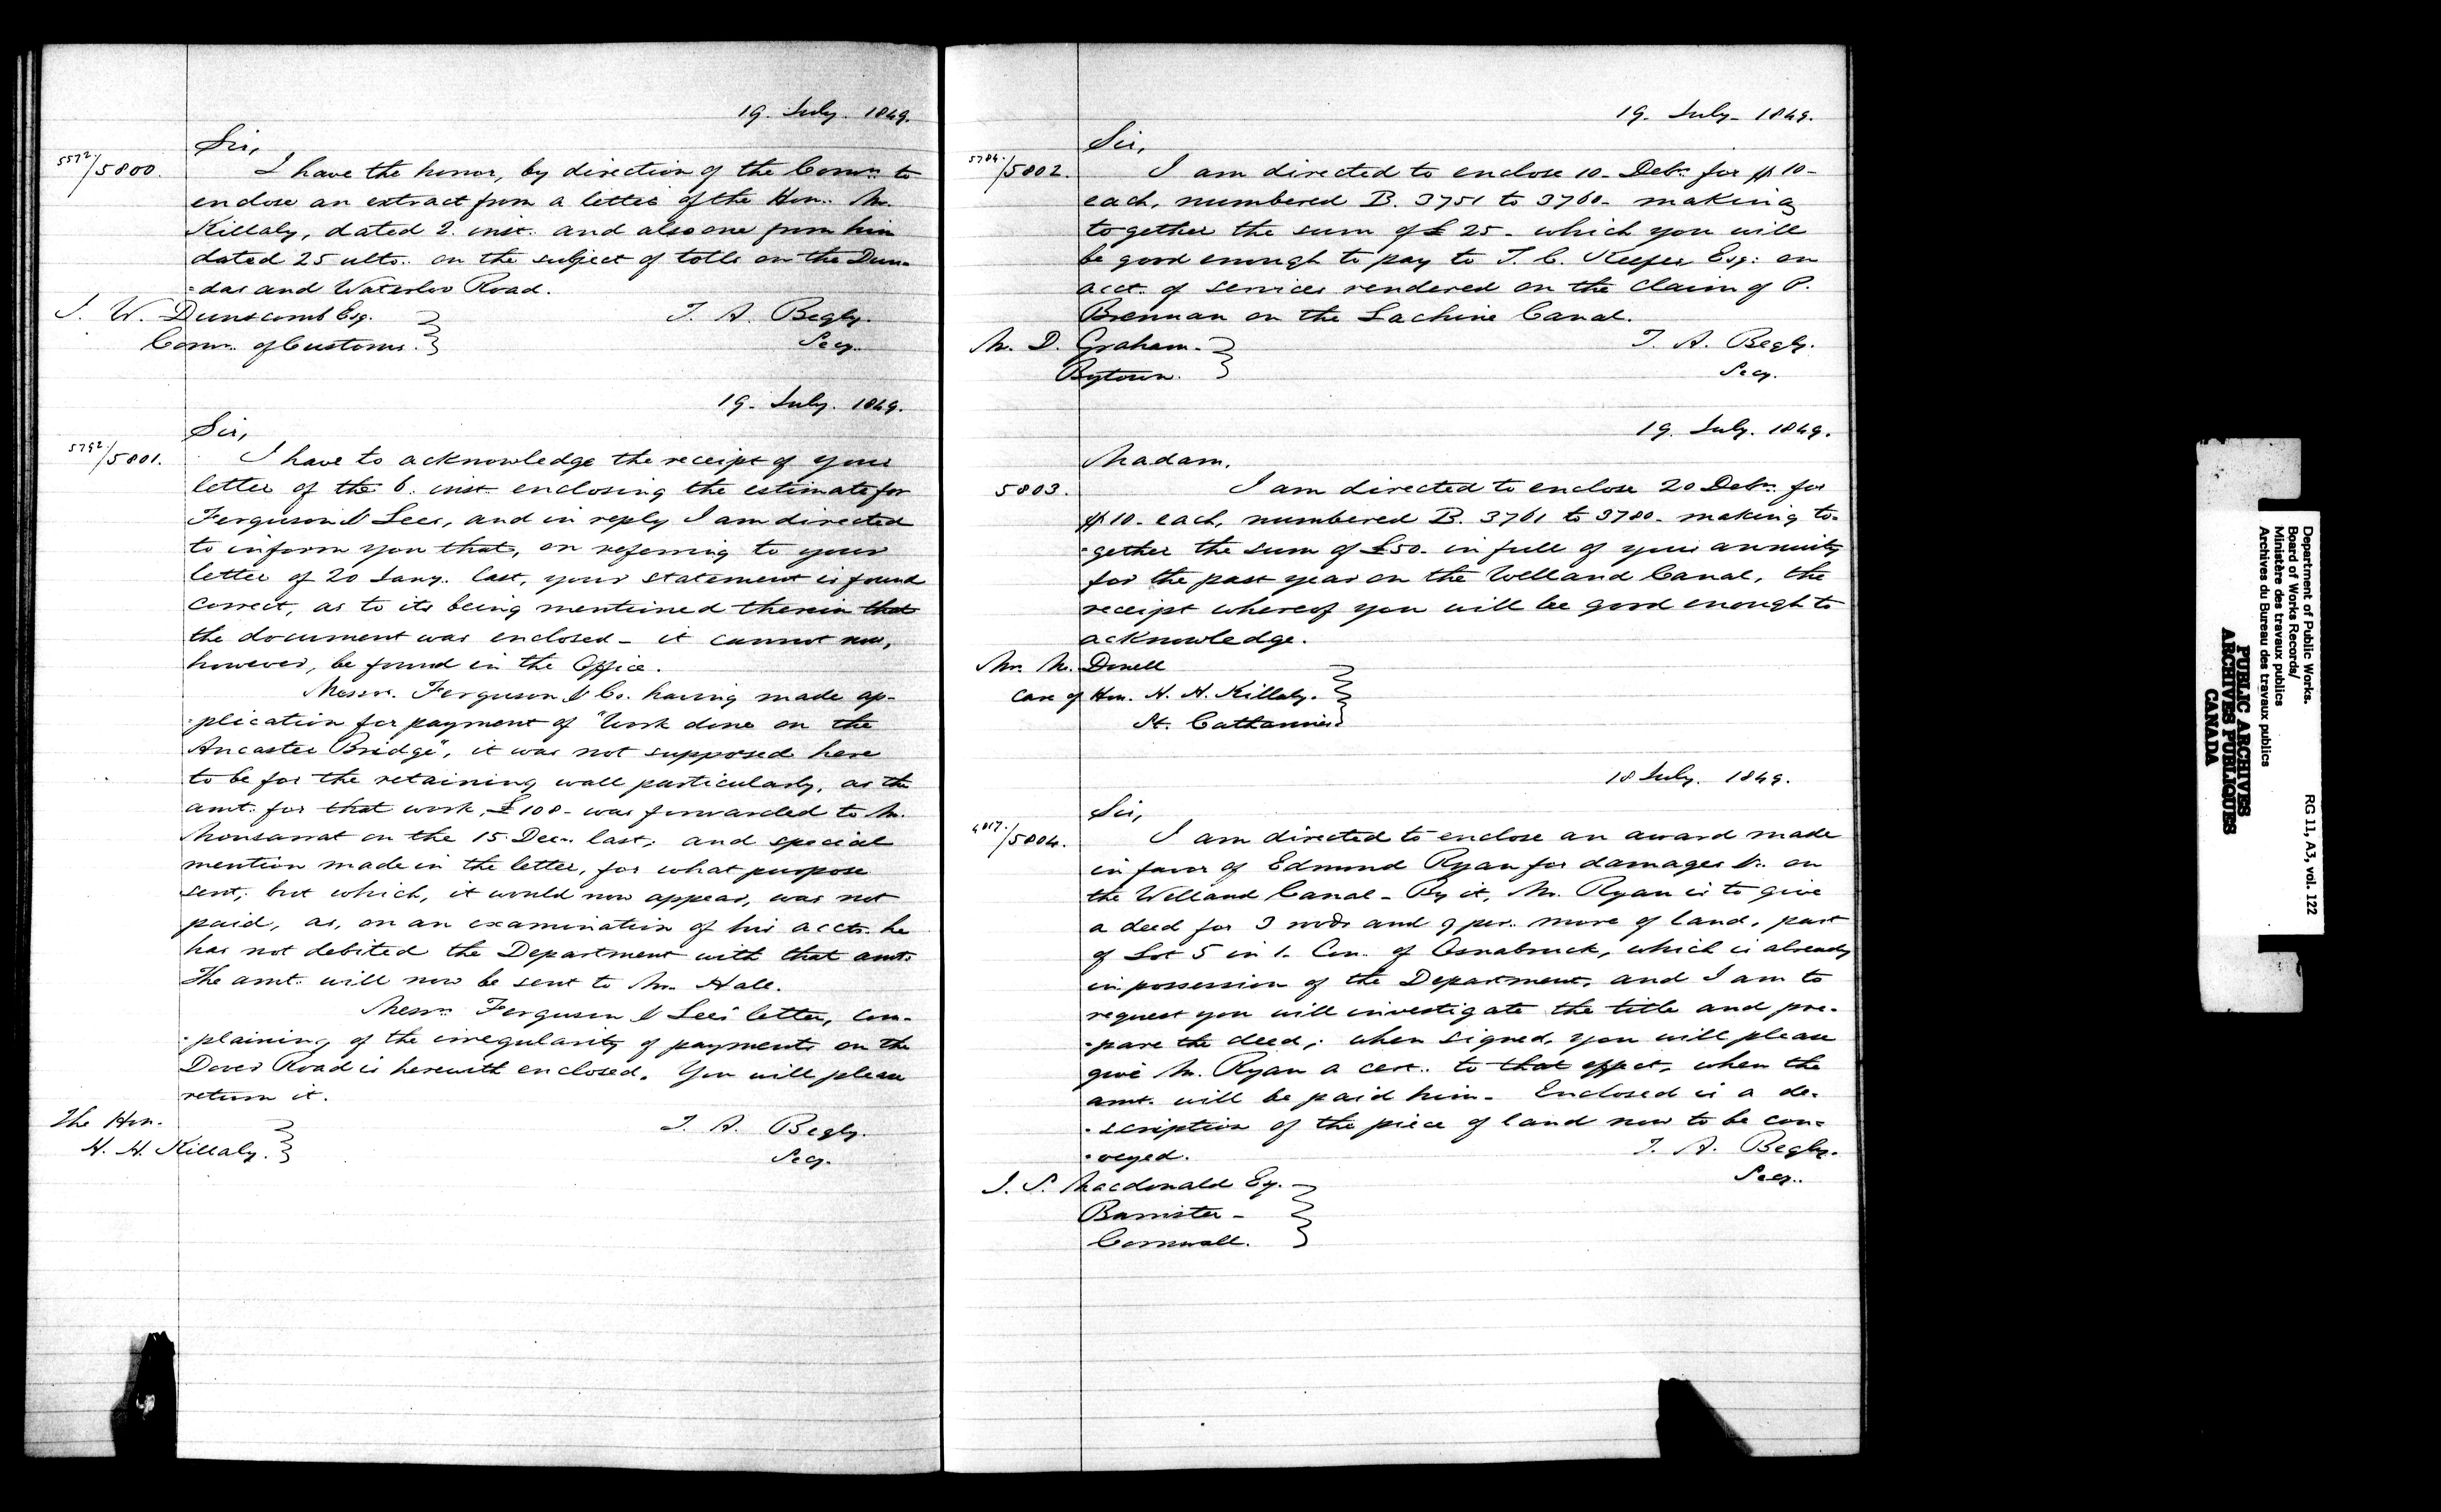 19. July. 1849.
Sir,
5572/5800. I have the honor, by direction of the Comrs. to
enclose an extract from a letter of the Hon. Mr.
Killaly, dated 2. inst. and also one from him
dated 25 ulto. on the subject of tolls on the Dun-
-das and Waterloo Road.
J. W. Dunscomb Esq. T. A. Begly.
Comr. of Customs. Secy.
19. July. 1849.
Sir,
5792/5801. I have to acknowledge the receipt of your
letter of the 6. inst. enclosing the estimate for
Ferguson & Lees, and in reply I am directed
to inform you that, on referring to your
letter of 20 Jany. last, your statement is found
correct, as to its being mentioned therein that
the document was enclosed - it cannot now,
however, be found in the Office.
Messrs. Ferguson & Co. having made ap-
-plication for payment of "Work done on the
Ancaster Bridge", it was not supposed here
to be for the retaining wall particularly, as the
amt. for that work, £108- was forwarded to Mr.
Monsarrat on the 15. Decr. last, and special
mention made in the letter, for what purpose
sent; but which, it would now appear, was not
paid, as, on an examination of his accts. he
has not debited the Department with that amt.
The amt. will now be sent to Mr. Hall.
Messrs. Ferguson & Lees' letter, com-
-plaining of the irregularity of payments on the
Dover Road is herewith enclosed. You will please
return it.
The Hon. T. A. Begly.
H. H. Killaly. Secy.
19. July. 1849.
Sir,
5784./5802. I am directed to enclose 10. Debs. for $10-
each, numbered B. 3751 to 3760- making
together the sum of £25- which you will
be good enough to pay to T. C. Keefer Esq: on
acct. of services rendered on the claim of P.
Brennan on the Lachine Canal.
Mr. D. Graham. T. A. Begly.
Bytown. Secy.
19. July. 1849.
Madam,
5803. I am directed to enclose 20 Debs. for
$10- each, numbered B. 3761 to 3780- making to-
-gether the sum of £50- in full of your annuity
for the past year on the Welland Canal, the
receipt whereof you will be good enough to
acknowledge.
Mrs. M. Donell
Care of Hon. H. H. Killaly.
St. Catharines
18 July. 1849.
Sir,
4817./5804. I am directed to enclose an award made
in favor of Edmund Ryan for damages &c. on
the Welland Canal - By it, Mr. Ryan is to give
a deed for 3 roods and 9 per. more of land, part
of Lot 5 in 1. Con. of Osnabruck, which is already
in possession of the Department, and I am to
request you will investigate the title and pre-
-pare the deed; when signed, you will please
give Mr. Ryan a cert. to that effect, when the
amt. will be paid him- Enclosed is a de-
-scription of the piece of land now to be con-
-veyed. T. A. Begly.
J. S. Macdonald Esq. Secy.
Barrister -
Cornwall.
Department of Public Works. RG 11, A3, vol. 122
Board of Works Records/
Ministère des travaux publics
Archives du Bureau des travaux publics
PUBLIC ARCHIVES
ARCHIVES PUBLIQUES
CANADA